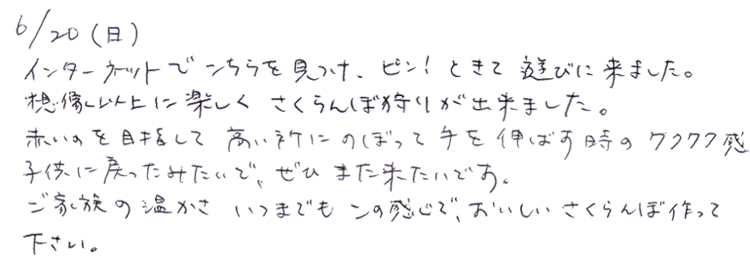 6/20(日)
インターネットでこちらを見つけ、ピン!ときて遊びに来ました。
想像以上に楽しくさくらんぼ狩りが出来ました。
赤いのを目指して高い所にのぼって手を伸ばす時のワクワク感
子供に戻ったみたいで、ぜひまた来たいです。
ご家族の温かさいつまでもこの感じで、おいしいさくらんぼ作って
下さい。